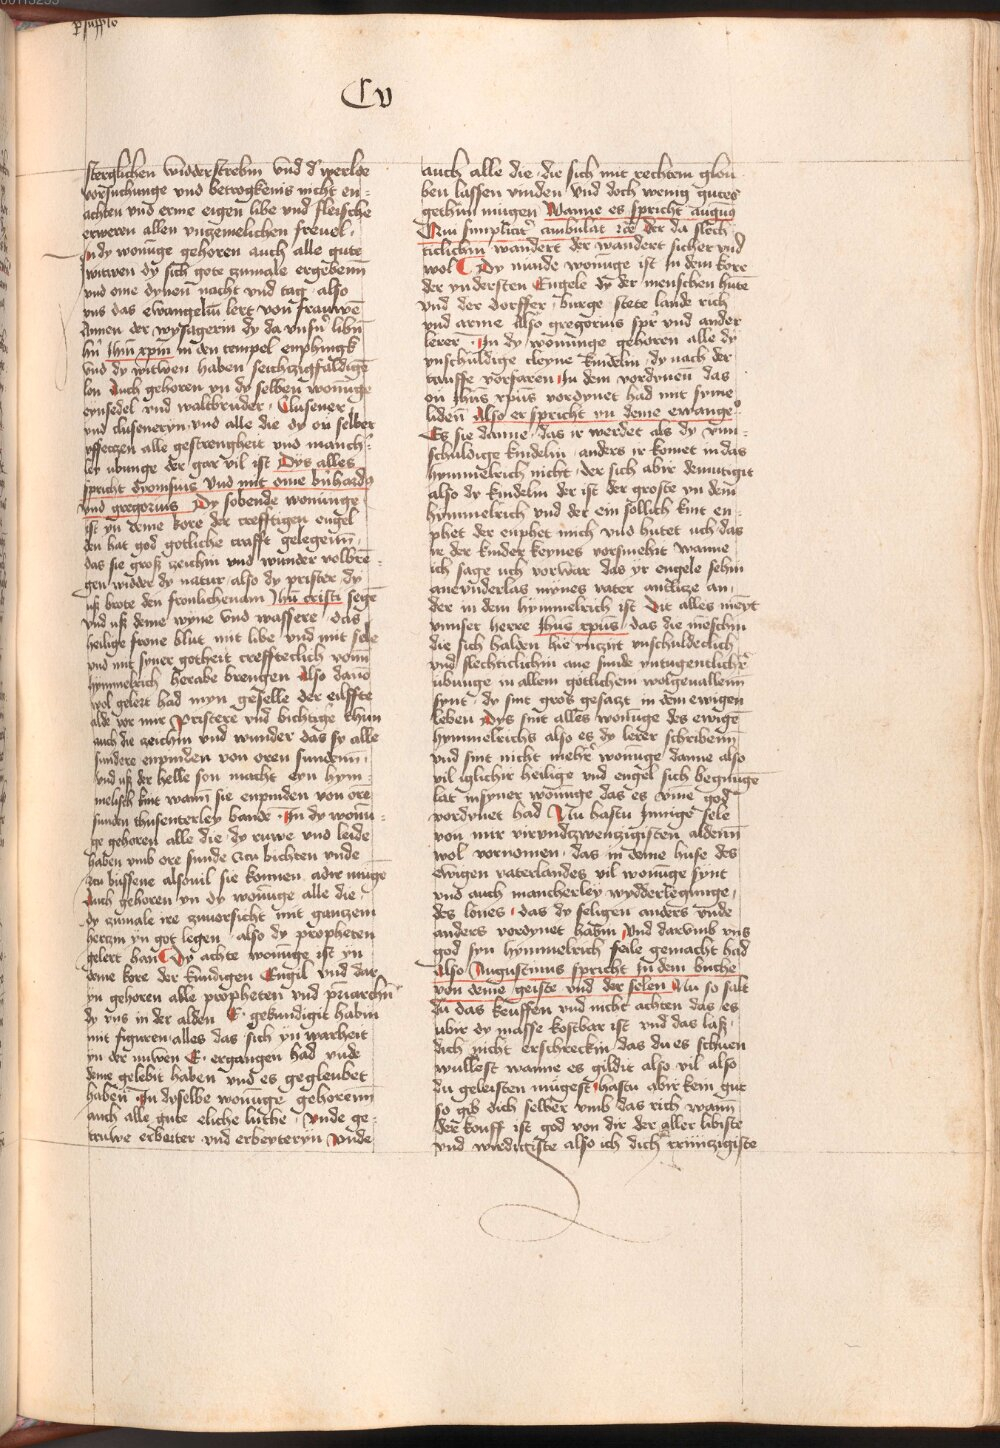 Cv
sterglichen widderstrebin vnd d' werlde
vorsuchunge vnd betrogkenis nicht en-
achten vnd erme eigen libe vnd fleische
erweren allen vngemelichen frevel.
In dy wonūge gehoren auch alle gute
witwen dy sich gote zumale ergebenn
vnd ome dynen nacht vnd tag also
vns das ewangeliū lert von frauwē
Annen der wysagerin dy da vnsn' libn
hn' Jhm xpm in den tempel emphingk
vnd dy witwen haben sechczigfaldigē
lon Auch gehoren yn dy selben wonūge
eynsedel vnd waltbruder Clusener
vnd cluseneryn vnd alle die dy on selber
vffseczen alle gestrengheit vnd manch-
ley ubunge der gar vil ist Dys alles
spricht dyonisius Vnd mit ome bn'hardg
vnd gregorius Dy sobende wonunge
ist yn deme kore der crefftigen engel
den hat god gotliche crafft gelegenn
das sie groß zeichin vnd wunder volbrē-
gen widder dy natur also dy prister dy
uß brote den fronlichenam Jhu cristi segē
vnd uß deme wyne vnd wassere das
heilige frone blut mit libe vnd mit sele
vnd mit syner gotheit creffteclich vonn
hymmelrich herabe brengen Also dauō
wol gelert had myn geselle der eilffte
alde vor mir Pristere vnd bichtig'e thun
auch die zeichin vnd wunder das sy alle
sundere enpinden von oren sundenn
vnd uß der helle son macht eyn hym-
melisch kint wann sie enpinden von ore
sunden thusenterley bande In dy wonū-
ge gehoren alle die dy ruwe vnd leide
haben vmb ore sunde zcu bichten vnde
zcu bussene alsovil sie konnen adir muge
Auch gehoren yn dy wonūge alle die
dy zumale ire zuuorsicht mit ganczem
herczin yn got legen also dy propheten
gelert han Dy achte wonūge ist yn
deme kore der kundigen Engil vnd dar
yn gehoren alle propheten vnd priarchn'
dy vns in der alden E gekundigit habin
mit figuren alles das sich yn warheit
yn der nuwen E ergangen had vnde
deme gelebit haben vnd es gegleubet
haben In dyselbe wonūge gehorenn
auch alle gute eliche luthe Vnde ge-
truwe erbeiter vnd erbeyteryn Vnde
auch alle die die sich mit rechtem glou
ben lassen vinden vnd doch wenig gutes
gethun mugen Wanne es spricht augus
Qui simplicit' ambulat zce Der da slech
ticlichin wandert der wandert sicher vnd
wol Dy nunde wonūge ist In dem kore
der vndersten Engele dy der menschen hute
vnd der dorffer burge stete lande rich
vnd arme Also gregorius spr' vnd ander
lerer In dy wonunge gehoren alle dy
vnschuldige cleyne kindelin dy nach der
tauffe vorfaren In dem vordynen das
on Jhus xpus vordynet had mit syme
liden Also er spricht yn deme ewange
Es sie danne das ir werdet als dy vn-
schuldige kindelin anders ir komet in das
hymmelrich nicht der sich abir demutigit
also dy kindelin der ist der groste yn dem
hymmelrich vnd der ein sollich kint en-
phet der enphet mich vnd hutet uch das
ir der kinder keynes vorsmehit wanne
ich sage uch vorwar das yr engele sehin
anevnderlas mynes vater antlicze an
der in dem hymmelrich ist Dit alles meyt
vnnser herre Jhus xpus das die meschin
die sich halden hie vnczyt vnschuldeclich
vnd slechticlichin ane sunde yn tugentlichr'
ubunge in allem gotlichem wolgeuallenn
synt dy sint gros gesaczt in dem ewigen
leben Dys sint alles wonūge des ewigē
hymmelrichs also es dy lerer schribenn
vnd sint nicht mehr' wonūge danne also
vil iglichir heilige vnd engel sich begnuge
lat in syner wonūge das es yme god
vordynet had Nu hastu Innige sele
von mir virvndzwenczigisten aldenn
wol vornomen das in deme huse des
ewigen vaterlandes vil wonūge synt
vnd auch mancherley wydderlegunge
des lones das dy seligen anders vnde
anders vordynet habin Vnd darvmb vns
god syn hymmelrich feile gemacht had
Also Augustinus spricht In dem buche
von deme geiste vnd der selen Nu so salt
du das keuffen vnd nicht achten das es
ubir dy masse kostbar ist vnd das laß
dich nicht erschreckin das du es schuen
wullest wanne es gildit also vil also
du geleisten mugest hastu abir kein gut
so gib dich selber vmb das rich wann
Der kouff ist god von dir der aller libiste
vnd wirdigiste also ich dich xxiiiiczigiste